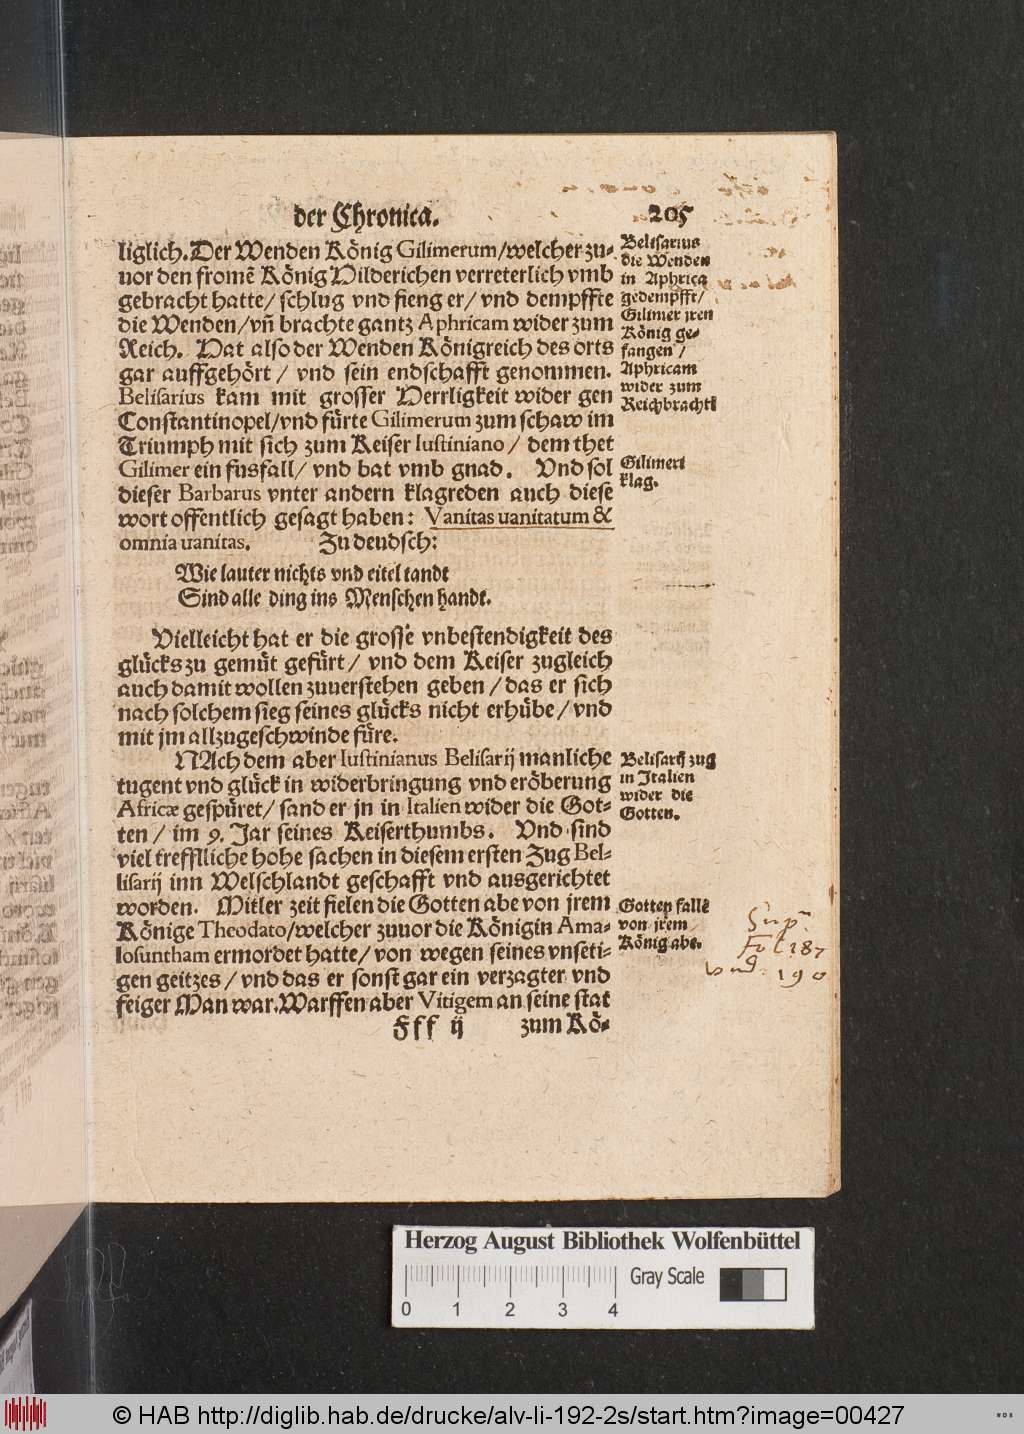 der Chronica. 205
liglich. Der Wenden König Gilimerum/welcher zu-
uor den fromẽ König Hilderichen verreterlich vmb
gebracht hatte/ schlug vnd fieng er/ vnd dempffte
die Wenden/vñ brachte gantz Aphricam wider zum
Reich. Hat also der Wenden Königreich des orts
gar auffgehört/ vnd sein endschafft genommen.
Belisarius kam mit grosser Herrligkeit wider gen
Constantinopel/vnd fürte Gilimerum zum schaw im
Triumph mit sich zum Keiser Iustiniano/ dem thet
Gilimer ein fusfall/ vnd bat vmb gnad. Vnd sol
dieser Barbarus vnter andern klagreden auch diese
wort offentlich gesagt haben: Vanitas uanitatum &
omnia uanitas. Zu deudsch:
Wie lauter nichts vnd eitel tandt
Sind alle ding ins Menschen handt.
Vielleicht hat er die grosse vnbestendigkeit des
glücks zu gemüt gefürt/ vnd dem Keiser zugleich
auch damit wollen zuuerstehen geben/das er sich
nach solchem sieg seines glücks nicht erhübe/ vnd
mit jm allzugeschwinde füre.
NAch dem aber Iustinianus Belisarij manliche
tugent vnd glück in widerbringung vnd eröberung
Africæ gespüret/ sand er jn in Italien wider die Got-
ten/ im 9. Jar seines Keiserthumbs. Vnd sind
viel treffliche hohe sachen in diesem ersten Zug Bel-
lisarij inn Welschlandt geschafft vnd ausgerichtet
worden. Mitler zeit fielen die Gotten abe von jrem
Könige Theodato/welcher zuuor die Königin Ama-
losuntham ermordet hatte/ von wegen seines vnseti-
gen geitzes/ vnd das er sonst gar ein verzagter vnd
feiger Man war. Warffen aber Vitigem an seine stat
Fff ij zum Kö-
Belisarius
die Wenden
in Aphrica
gedempfft/
Gilimer jren
König ge-
fangen/
Aphricam
wider zum
Reich bracht
Gilimeri
klag.
Belisarij zug
in Italien
wider die
Gotten.
Gotten fallẽ
von jrem
König abe.
Sup.
Fol. 187
vnd. 190
Herzog August Bibliothek Wolfenbüttel
Gray Scale
0 1 2 3 4
© HAB http://diglib.hab.de/drucke/alv-li-192-2s/start.htm?image=00427